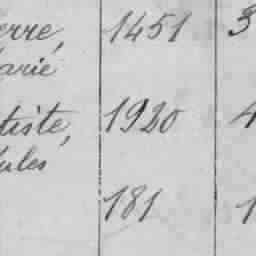 erre, 1451 3
arie
tiste, 1920 4
ules
181 1